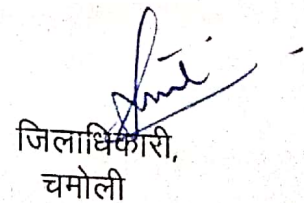 जिलाधिकारी,
चमोली